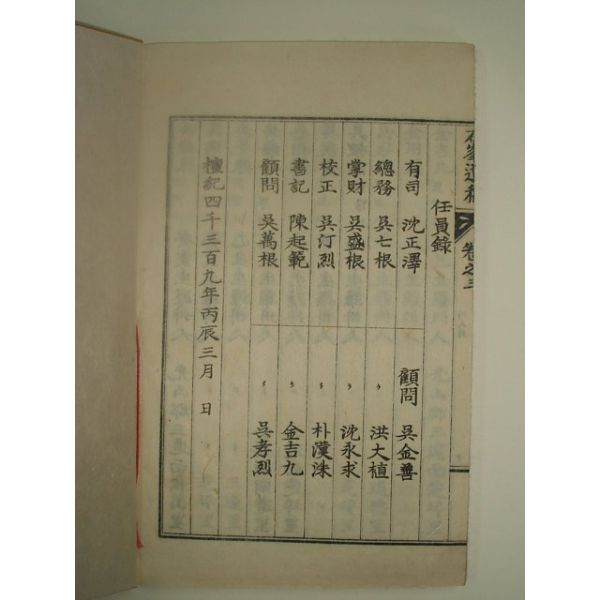 石峯遺稿 卷之三
任員錄
有司 沈正澤 顧問 吳金善
總務 吳七根 〃 洪大植
掌財 吳盛根 〃 沈永求
校正 吳汀烈 〃 朴漢洙
書記 陳起範 〃 金吉九
顧問 吳萬根 〃 吳孝烈
檀紀四千三百九年丙辰三月 日